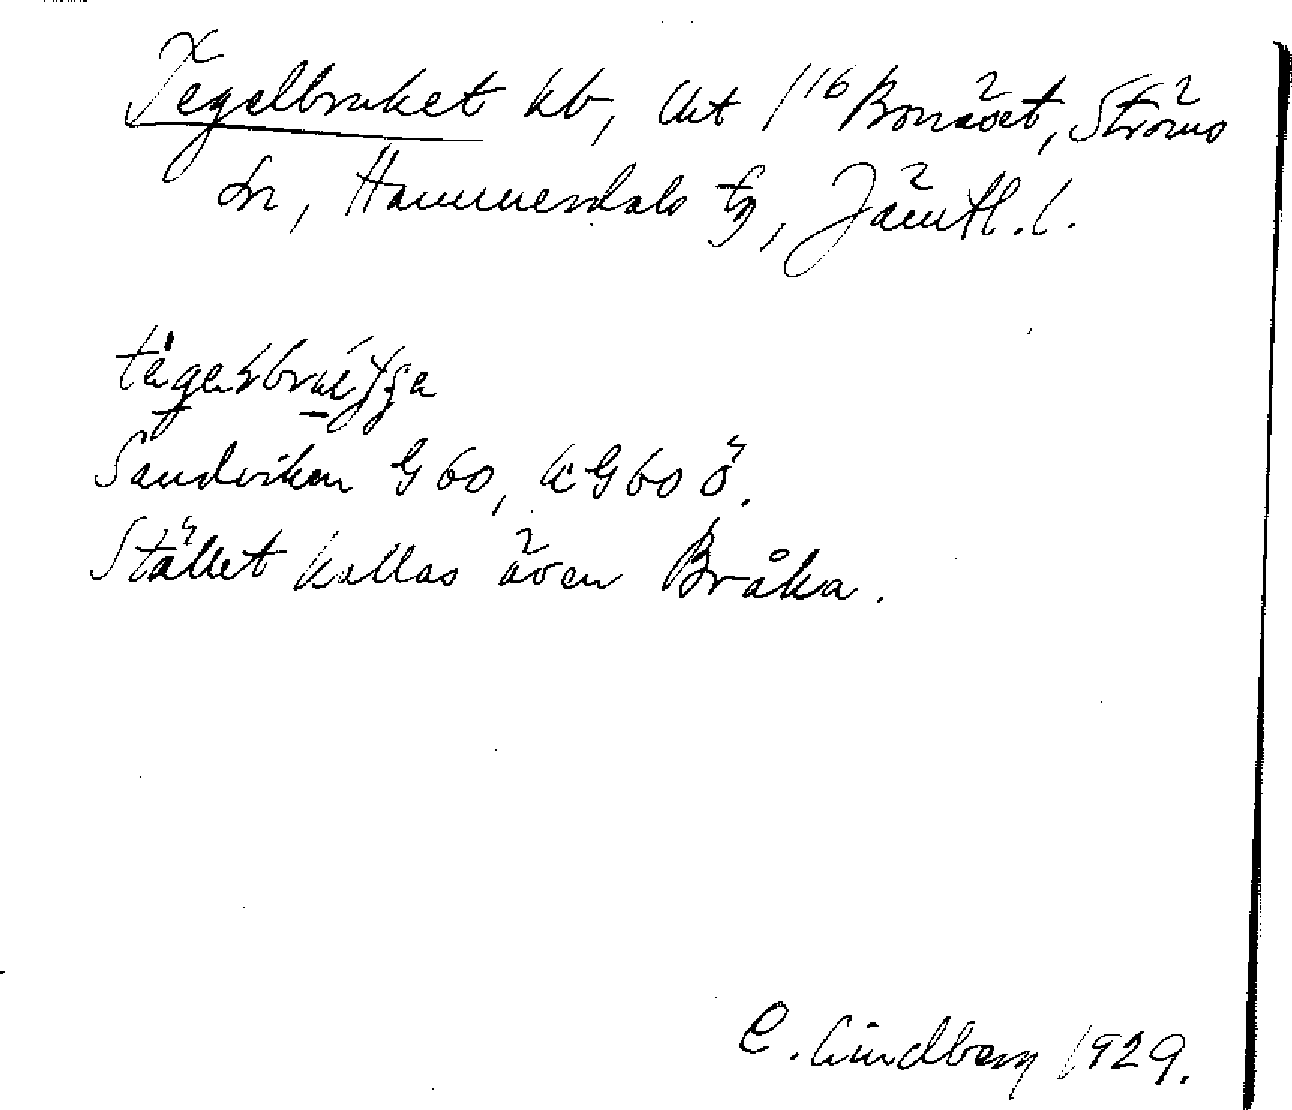 Tegelbruket lb, lht 1/16 Bonäset, Ströms
sn, Hammerdals tg, Jämtl. l.
Sandviken G 60, lc G 60 ö.
Stället kallas även Bråka.
C. Lindberg 1929.